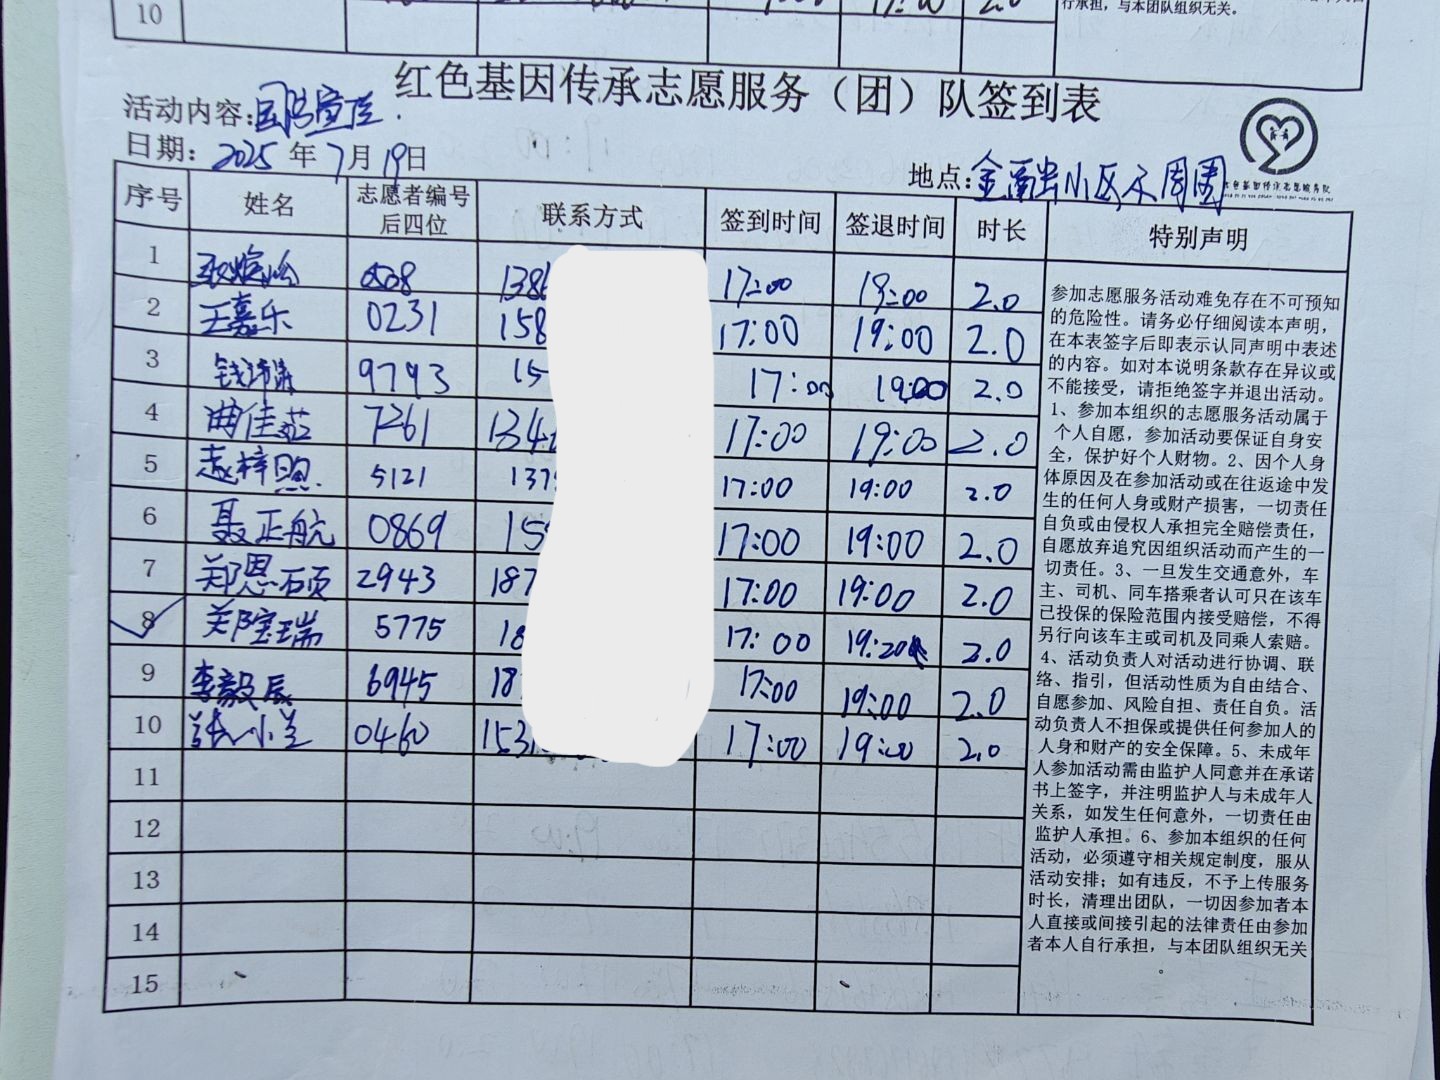 10
行承担，与本团队组织无关。
红色基因传承志愿服务（团）队签到表
活动内容：国防宣传.
日期：2025年7月19日
地点：金 小区 周围
序号 姓名 志愿者编号后四位 联系方式 签到时间 签退时间 时长 特别声明
1 0508 138 17:00 19:00 2.0
2 王嘉乐 0231 158 17:00 19:00 2.0
3 9793 15 17:00 19:00 2.0
4 曲佳茹 7261 134 17:00 19:00 2.0
5 5121 137 17:00 19:00 2.0
6 聂正航 0869 15 17:00 19:00 2.0
7 郑恩硕 2943 187 17:00 19:00 2.0
8 5775 18 17:00 19:20 2.0
9 李毅辰 6945 18 17:00 19:00 2.0
10 张小兰 0460 153 17:00 19:00 2.0
11
12
13
14
15
参加志愿服务活动难免存在不可预知
的危险性。请务必仔细阅读本声明，
在本表签字后即表示认同声明中表述
的内容。如对本说明条款存在异议或
不能接受，请拒绝签字并退出活动。
1、参加本组织的志愿服务活动属于
个人自愿，参加活动要保证自身安
全，保护好个人财物。2、因个人身
体原因及在参加活动或在往返途中发
生的任何人身或财产损害，一切责任
自负或由侵权人承担完全赔偿责任，
自愿放弃追究因组织活动而产生的一
切责任。3、一旦发生交通意外，车
主、司机、同车搭乘者认可只在该车
已投保的保险范围内接受赔偿，不得
另行向该车主或司机及同乘人索赔。
4、活动负责人对活动进行协调、联
络、指引，但活动性质为自由结合、
自愿参加、风险自担、责任自负。活
动负责人不担保或提供任何参加人的
人身和财产的安全保障。5、未成年
人参加活动需由监护人同意并在承诺
书上签字，并注明监护人与未成年人
关系，如发生任何意外，一切责任由
监护人承担。6、参加本组织的任何
活动，必须遵守相关规定制度，服从
活动安排；如有违反，不予上传服务
时长，清理出团队，一切因参加者本
人直接或间接引起的法律责任由参加
者本人自行承担，与本团队组织无关
。